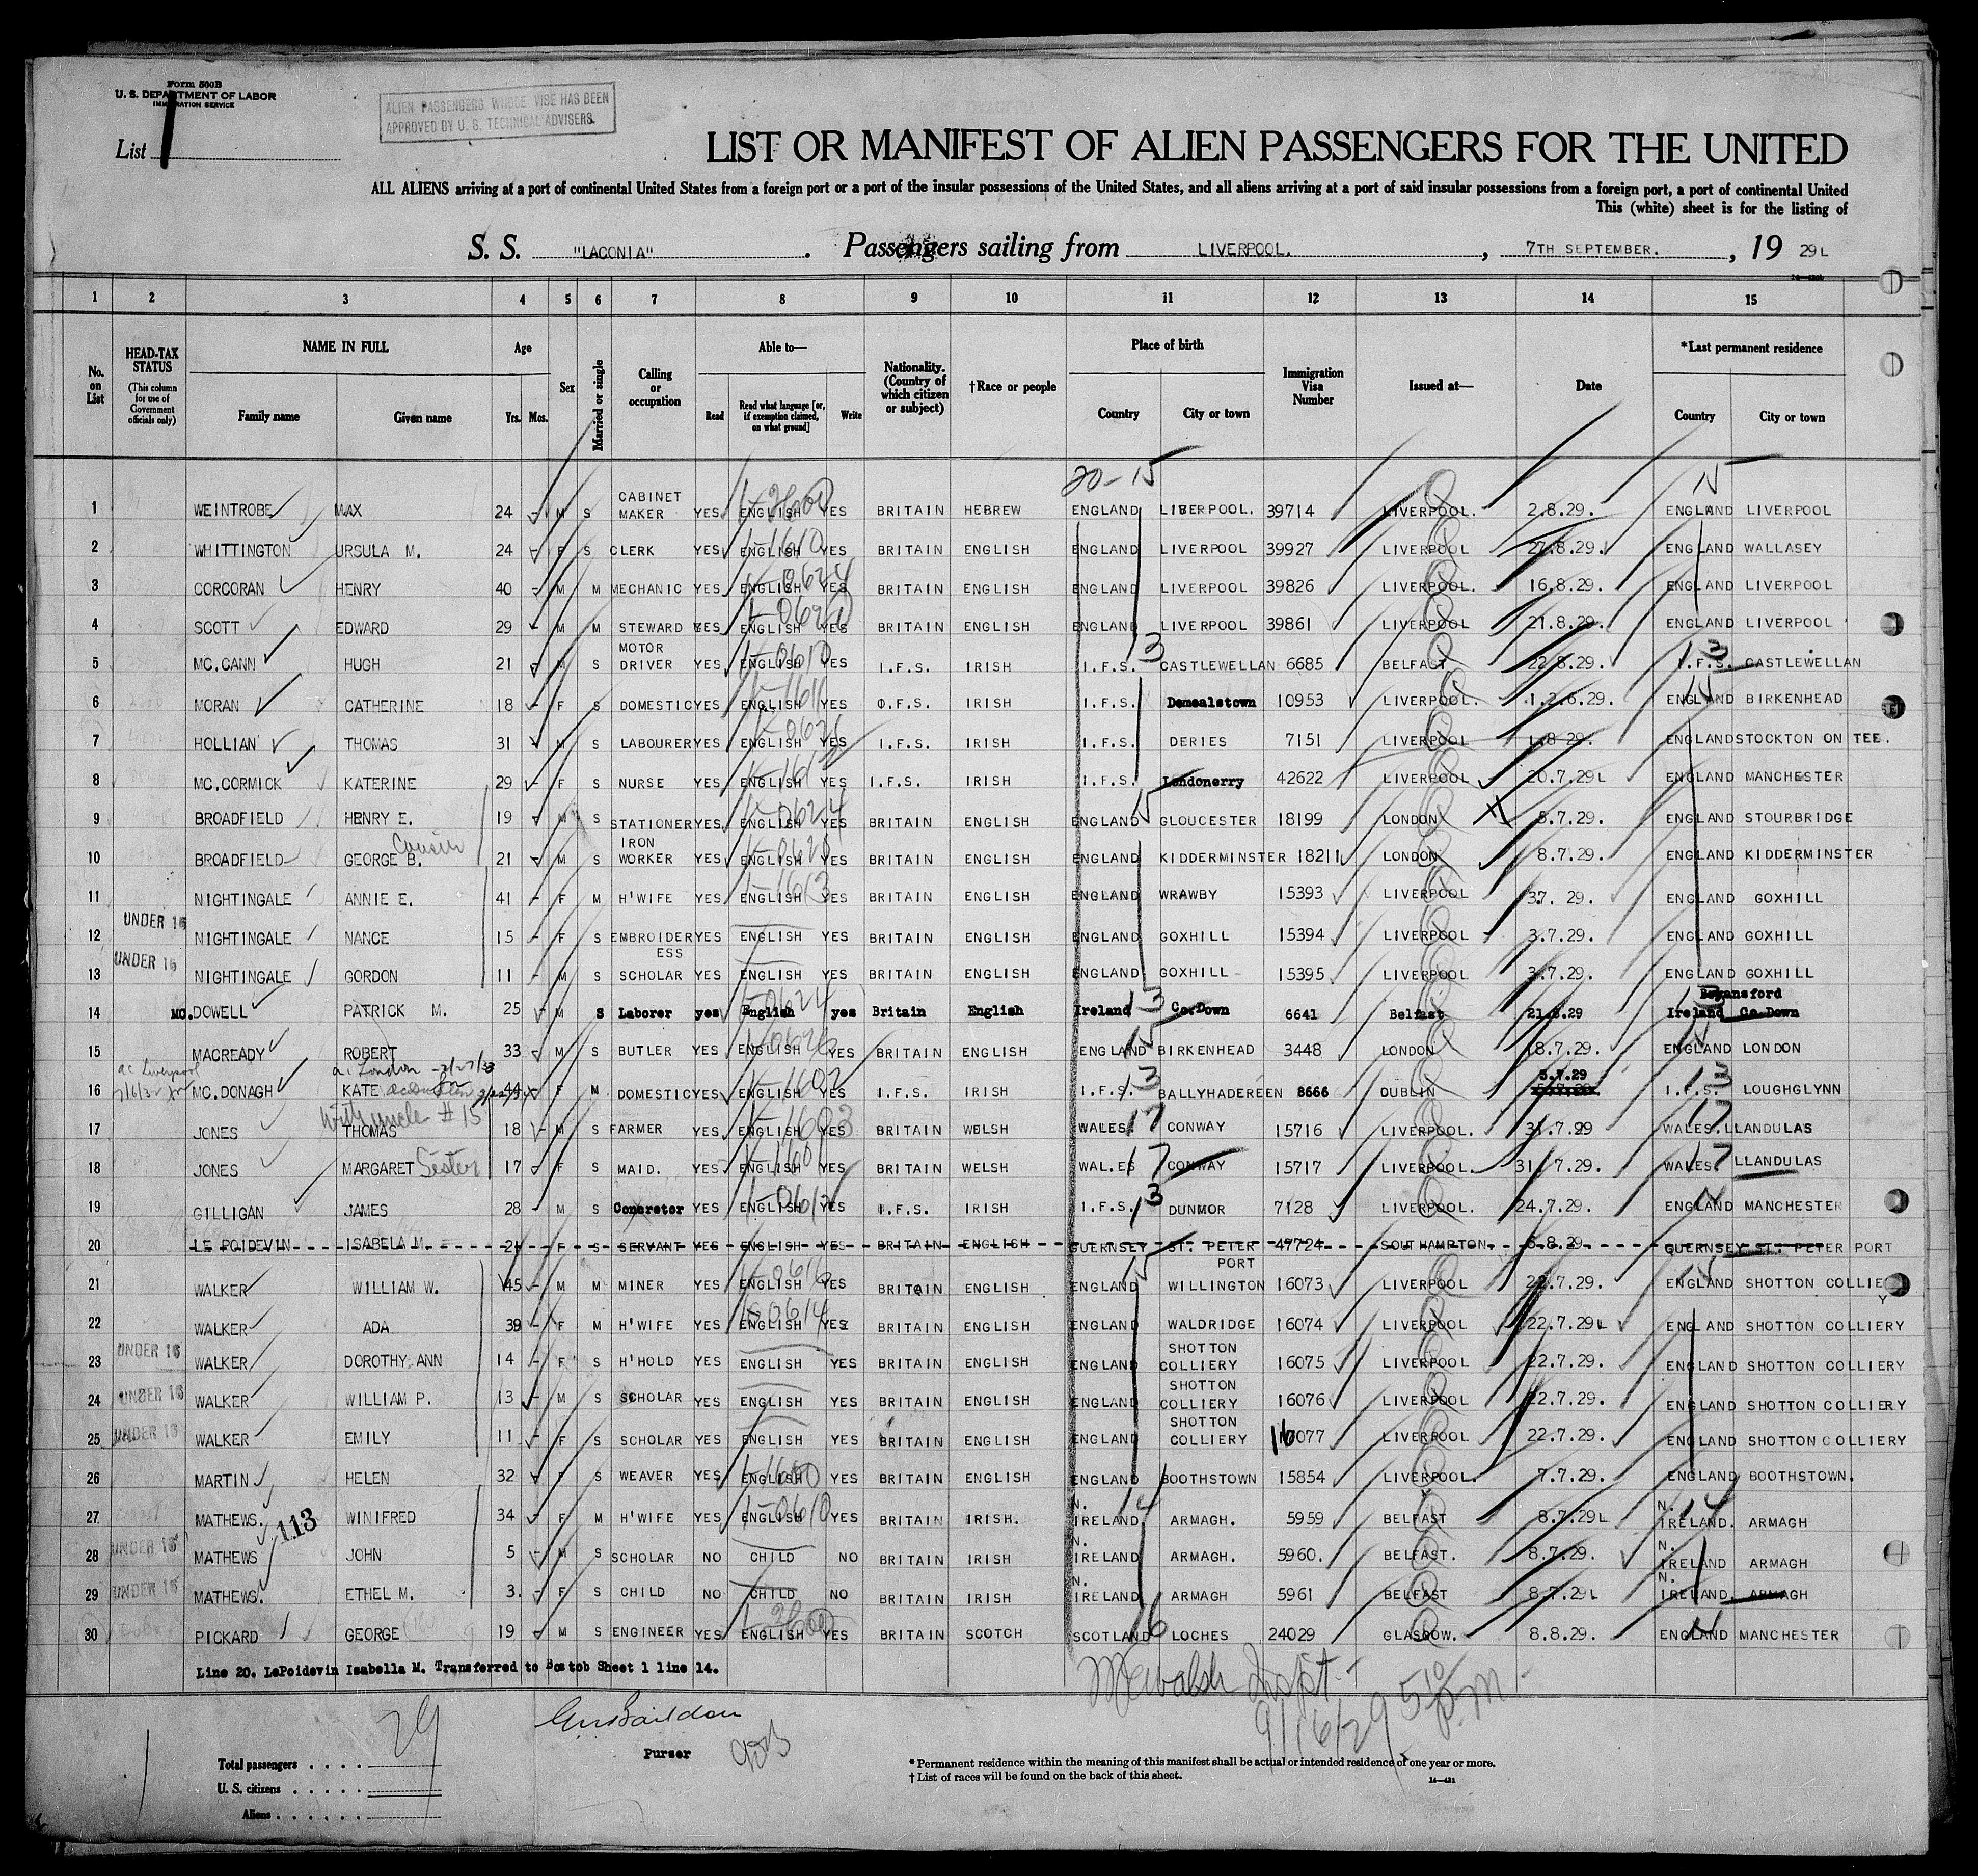 Form 500B
U. S. DEPARTMENT OF LABOR
IMMIGRATION SERVICE
ALIEN PASSENGERS WHOSE VISE HAS BEEN
APPROVED BY U. S. TECHNICAL ADVISERS.
List 1
LIST OR MANIFEST OF ALIEN PASSENGERS FOR THE UNITED
ALL ALIENS arriving at a port of continental United States from a foreign port or a port of the insular possessions of the United States, and all aliens arriving at a port of said insular possessions from a foreign port, a port of continental United
This (white) sheet is for the listing of
S. S. "LACONIA". Passengers sailing from LIVERPOOL., 7TH SEPTEMBER., 19 29L
1 2 3 4 5 6 7 8 9 10 11 12 13 14 15
No. on List
HEAD-TAX STATUS (This column for use of Government officials only)
NAME IN FULL Family name Given name
Age Yrs. Mos.
Sex
Married or single
Calling or occupation
Able to— Read Read what language [or, if exemption claimed, on what ground] Write
Nationality. (Country of which citizen or subject)
†Race or people
Place of birth Country City or town
Immigration Visa Number
Issued at—
Date
*Last permanent residence Country City or town
20-15 15
1 WEINTROBE MAX 24 - M S CABINET MAKER YES ENGLISH YES BRITAIN HEBREW ENGLAND LIVERPOOL. 39714 LIVERPOOL. 2.8.29. ENGLAND LIVERPOOL
2 WHITTINGTON URSULA M. 24 - F S CLERK YES ENGLISH YES BRITAIN ENGLISH ENGLAND LIVERPOOL 39927 LIVERPOOL 27.8.29. ENGLAND WALLASEY
3 CORCORAN HENRY 40 - M M MECHANIC YES ENGLISH YES BRITAIN ENGLISH ENGLAND LIVERPOOL 39826 LIVERPOOL. 16.8.29. ENGLAND LIVERPOOL
4 SCOTT EDWARD 29 - M M STEWARD YES ENGLISH YES BRITAIN ENGLISH ENGLAND LIVERPOOL 39861 LIVERPOOL 21.8.29. ENGLAND LIVERPOOL
5 MC.CANN HUGH 21 - M S MOTOR DRIVER YES ENGLISH YES I.F.S. IRISH I.F.S. 13 CASTLEWELLAN 6685 BELFAST 22.8.29. I.F.S. 13 CASTLEWELLAN
6 MORAN CATHERINE 18 - F S DOMESTIC YES ENGLISH YES I.F.S. IRISH I.F.S. Demealstown 10953 LIVERPOOL. 1.2.6.29. ENGLAND BIRKENHEAD
7 HOLLIAN THOMAS 31 - M S LABOURER YES ENGLISH YES I.F.S. IRISH I.F.S. DERIES 7151 LIVERPOOL 1.8 29. ENGLAND STOCKTON ON TEE.
8 MC.CORMICK KATERINE 29 - F S NURSE YES ENGLISH YES I.F.S. IRISH I.F.S. Londonerry 42622 LIVERPOOL 20.7.29L ENGLAND MANCHESTER
9 BROADFIELD HENRY E. 19 - M S STATIONER YES ENGLISH YES BRITAIN ENGLISH ENGLAND GLOUCESTER 18199 LONDON 8.7.29. ENGLAND STOURBRIDGE
Cousin
10 BROADFIELD GEORGE B. 21 - M S IRON WORKER YES ENGLISH YES BRITAIN ENGLISH ENGLAND KIDDERMINSTER 18211 LONDON 8.7.29. ENGLAND KIDDERMINSTER
11 NIGHTINGALE ANNIE E. 41 - F M H'WIFE YES ENGLISH YES BRITAIN ENGLISH ENGLAND WRAWBY 15393 LIVERPOOL 37. 29. ENGLAND GOXHILL
12 UNDER 16 NIGHTINGALE NANCE 15 - F S EMBROIDERESS YES ENGLISH YES BRITAIN ENGLISH ENGLAND GOXHILL 15394 LIVERPOOL 3.7.29. ENGLAND GOXHILL
13 UNDER 16 NIGHTINGALE GORDON 11 - M S SCHOLAR YES ENGLISH YES BRITAIN ENGLISH ENGLAND GOXHILL 15395 LIVERPOOL 3.7.29. ENGLAND GOXHILL
14 MC.DOWELL PATRICK M. 25 - M S Laborer yes English yes Britain English Ireland 13 Co.Down 6641 Belfast 21.8.29 Ireland 13 Bryansford Co.Down
15 MACREADY ROBERT 33 - M S BUTLER YES ENGLISH YES BRITAIN ENGLISH ENGLAND BIRKENHEAD 3448 LONDON 18.7.29. ENGLAND LONDON
16 MC.DONAGH KATE 44 F M DOMESTIC YES ENGLISH YES I.F.S. IRISH I.F.S. 13 BALLYHADEREEN 8666 DUBLIN 5.7.29 I.F.S. 13 LOUGHGLYNN
With uncle # 15
17 JONES THOMAS 18 - M S FARMER YES ENGLISH YES BRITAIN WELSH WALES. 17 CONWAY 15716 LIVERPOOL. 31.7.29 WALES. 17 LLANDULAS
18 JONES MARGARET Sister 17 - F S MAID. YES ENGLISH YES BRITAIN WELSH WALES 17 CONWAY 15717 LIVERPOOL. 31.7.29. WALES. 17 LLANDULAS
19 GILLIGAN JAMES 28 - M S Concretor YES ENGLISH YES I.F.S. IRISH I.F.S. 13 DUNMOR 7128 LIVERPOOL. 24.7.29. ENGLAND MANCHESTER
20 LE POIDEVIN ISABELA M. 21 F S SERVANT YES ENGLISH YES BRITAIN ENGLISH GUERNSEY ST. PETER PORT 47724 SOUTHAMPTON. 6.8.29. GUERNSEY ST. PETER PORT
21 WALKER WILLIAM W. 45 - M M MINER YES ENGLISH YES BRITAIN ENGLISH ENGLAND WILLINGTON 16073 LIVERPOOL 22.7.29. ENGLAND SHOTTON COLLIERY
22 WALKER ADA 39 - F M H'WIFE YES ENGLISH YES BRITAIN ENGLISH ENGLAND WALDRIDGE 16074 LIVERPOOL 22.7.29L ENGLAND SHOTTON COLLIERY
23 UNDER 16 WALKER DOROTHY ANN 14 - F S H'HOLD YES ENGLISH YES BRITAIN ENGLISH ENGLAND SHOTTON COLLIERY 16075 LIVERPOOL 22.7.29. ENGLAND SHOTTON COLLIERY
24 UNDER 16 WALKER WILLIAM P. 13 - M S SCHOLAR YES ENGLISH YES BRITAIN ENGLISH ENGLAND SHOTTON COLLIERY 16076 LIVERPOOL 22.7.29. ENGLAND SHOTTON COLLIERY
25 UNDER 16 WALKER EMILY 11 - F S SCHOLAR YES ENGLISH YES BRITAIN ENGLISH ENGLAND SHOTTON COLLIERY 16077 LIVERPOOL 22.7.29. ENGLAND SHOTTON COLLIERY
26 MARTIN HELEN 32 - F S WEAVER YES ENGLISH YES BRITAIN ENGLISH ENGLAND BOOTHSTOWN 15854 LIVERPOOL. 7.7.29. ENGLAND BOOTHSTOWN.
27 MATHEWS. 113 WINIFRED 34 - F M H'WIFE YES ENGLISH YES BRITAIN IRISH. N. IRELAND 14 ARMAGH. 5959 BELFAST 8.7.29L N. IRELAND. 14 ARMAGH
28 UNDER 16 MATHEWS JOHN 5 - M S SCHOLAR NO CHILD NO BRITAIN IRISH N. IRELAND ARMAGH. 5960. BELFAST. 8.7.29. N. IRELAND ARMAGH
29 UNDER 16 MATHEWS. ETHEL M. 3. - F S CHILD NO CHILD NO BRITAIN IRISH N. IRELAND ARMAGH 5961 BELFAST 8.7.29L N. IRELAND. ARMAGH
30 PICKARD GEORGE 19 - M S ENGINEER YES ENGLISH YES BRITAIN SCOTCH SCOTLAND 16 LOCHES 24029 GLASGOW. 8.8.29. ENGLAND MANCHESTER
Line 20. LePoidevin Isabella M. Transferred to Bostob Sheet 1 line 14.
Total passengers . . . . 29
U. S. citizens . . . . .
Aliens . . . . . .
Purser
9/16/29 5 10 P.M.
* Permanent residence within the meaning of this manifest shall be actual or intended residence of one year or more.
† List of races will be found on the back of this sheet.
14—431